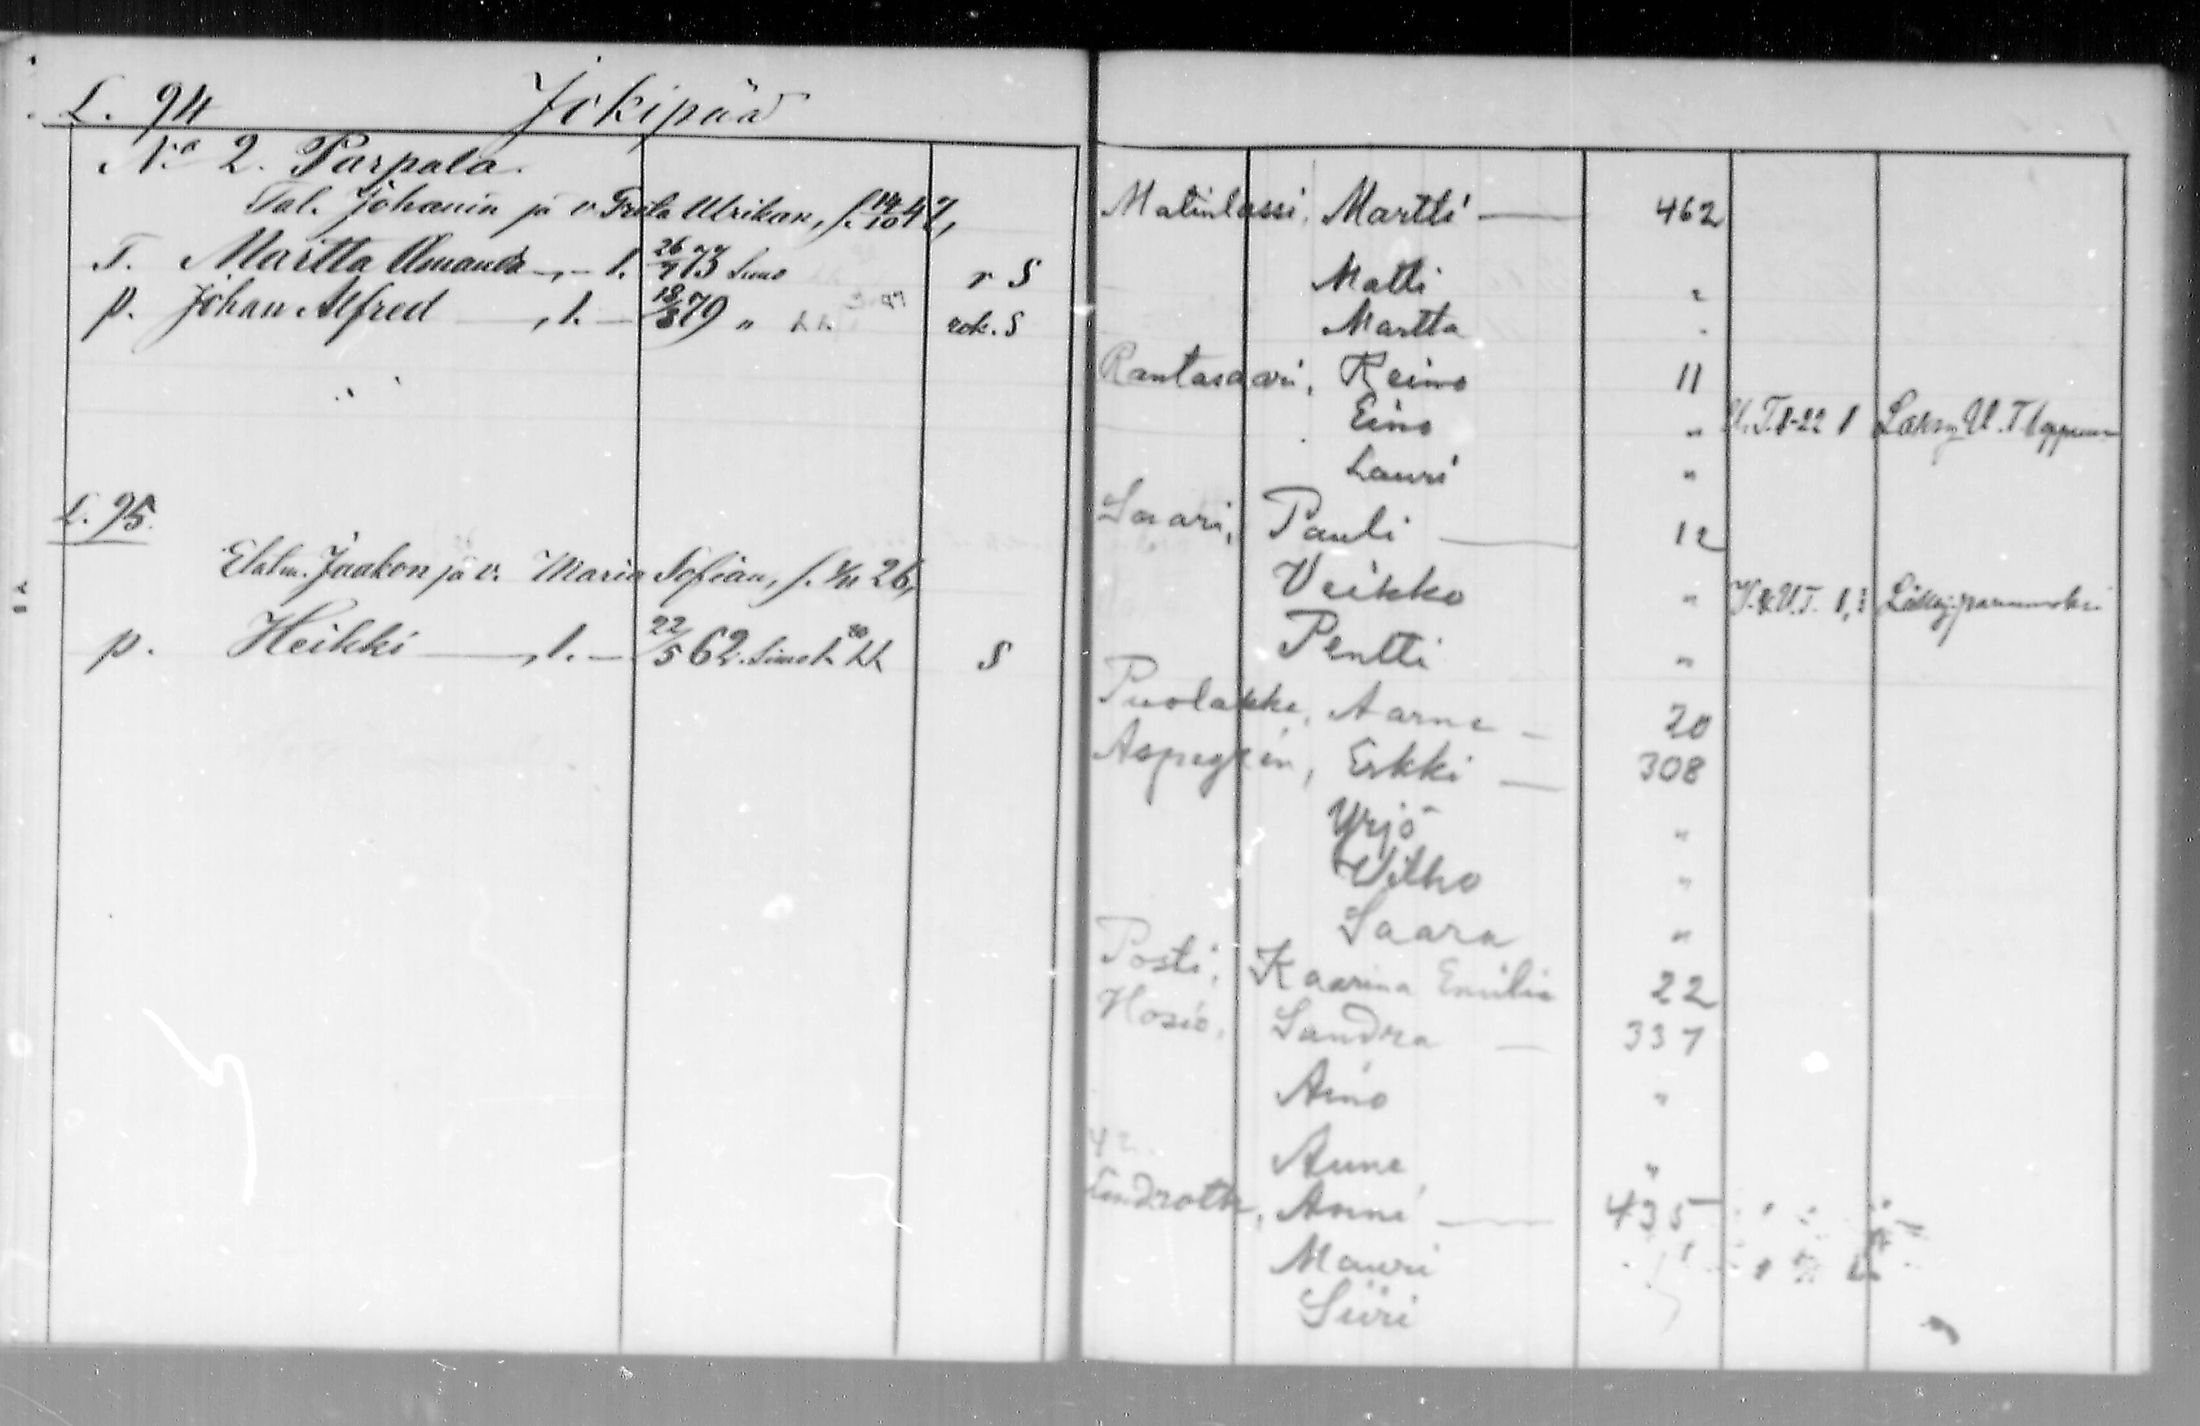 L. 94 Jokipää
N:o 2. Parpala.
Tal. Johanin ja v. Greta Ulrikan, s. 14/10 47,
T. Martta Amanda —„— s. 26/7 73 Simo r S
p. Johan Alfred —„ s. — 18/8 79 „ rok. S
L. 95.
Jaakon ja v. Maria Sofian, s. 26,
p. Heikki —„ s. — 22/5 62. S
Matinlassi, Martti — 462
Matti „
Martta „
Rantasaari, Reino 11
Eino „ U.T. 1-22
Lauri „
Saari, Pauli — 12
Veikko „
Pentti „
Puolakka, Aarne — 20
Aspegrén, Erkki — 308
Yrjö „
Vilho „
Saara „
Posti, Kaarina Emilia 22
Hosio, Sandra — 337
Aino „
Aune „
Anni — 435
Mauri
Siiri